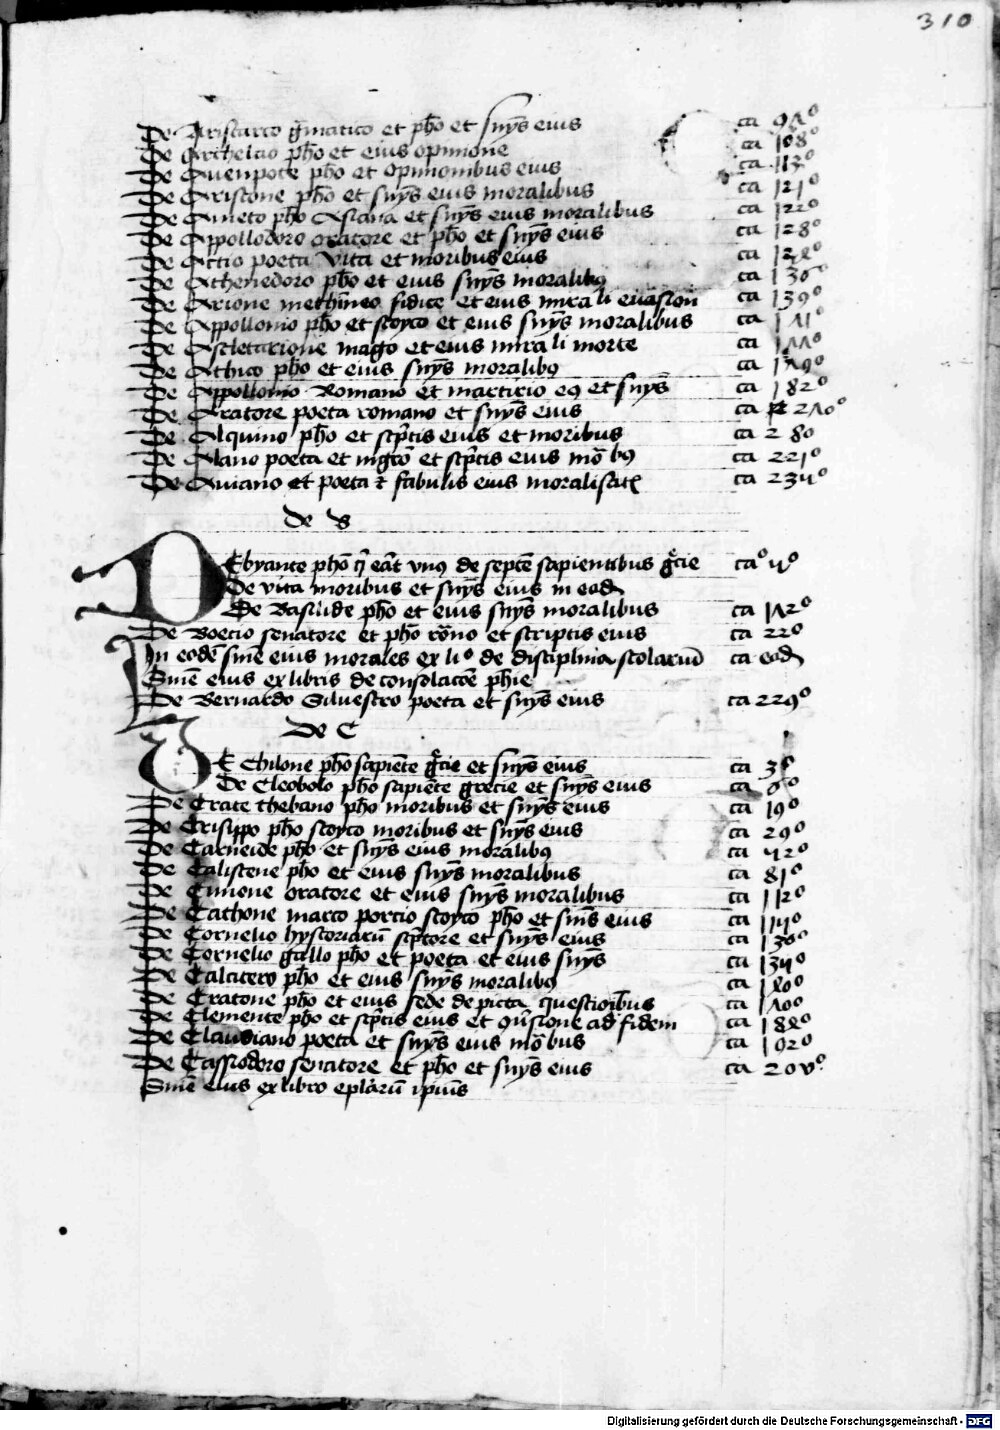 310
De Aristarco g̅matico et ph̅o et sn̅ys eius ca
De Archelao ph̅o et eius opinione ca 108°
De Auenpote ph̅o et opinionibus eius ca 113°
De Aristone ph̅o et sn̅ys eius moralibus ca 121°
De ph̅o Asiana et sn̅ys eius moralibus ca 122°
De Appollodoro oratore et ph̅o et sn̅ys eius ca 128°
De Actio poeta vita et moribus eius ca
De Athenedoro ph̅o et eius sn̅ys moralibꝰ ca 130°
De Arione fidice et eius mirali euasion ca 139°
De Appollonio ph̅o et stoyco et eius sn̅ys moralibus ca
De Ascletarione mago et eius mirali morte ca
De Athico ph̅o et eius sn̅ys moralibꝰ ca
De Appollonio Romano et martirio eꝰ et sn̅ys ca 182°
De Oratore poeta romano et sn̅ys eius ca 2Λ0°
De Alquino ph̅o et sc̅ptis eius et moribus ca 280
De Alano poeta et mgr̅o et sc̅ptis eius mo̅bꝰ ca 221°
De Auiano et poeta et fabulis eius moralisat ca 234°
de B
DE byante ph̅o q̅ erat vnꝰ de septe̅ sapientibus g̅cie ca° 4°
De vita moribus et sn̅ys eius in eod
De Basilide ph̅o et eius sn̅ys moralibus ca 1Λ2°
De Boecio senatore et ph̅o ro̅no et scriptis eius ca 22°
In eode̅ sn̅e eius morales ex li° de disciplina scolariu̅ ca eod
Sn̅e eius ex libris de consolac̅oe ph̅ie
De Bernardo Siluestro poeta et sn̅ys eius ca 229°
De C
DE Chilone ph̅o sapie̅te g̅cie et sn̅ys eius ca 3°
De Cleobolo ph̅o sapie̅te grecie et sn̅ys eius ca
De Crate thebano ph̅o moribus et sn̅ys eius ca 19°
De Crisippo ph̅o stoyco moribus et sn̅ys eius ca 29°
De Carneide ph̅o et sn̅ys eius moralibꝰ ca 42°
De Calistene ph̅o et eius sn̅ys moralibus ca 81°
De oratore et eius sn̅ys moralibus ca 112°
De Cathone marco portio stoyco ph̅o et sn̅is eius ca 114°
De Cornelio hystoriaru̅ sc̅ptore et sn̅ys eius ca 130°
De Cornelio gallo ph̅o et poeta et eius sn̅ys ca 134°
De ph̅o et eius sn̅ys moralibꝰ ca
De Cratone ph̅o et eius sede de picta questio̅ibus ca
De Clemente ph̅o et sc̅ptis eius et 9u̅sione ad fidem ca
De Claudiano poeta et sn̅ys eius mo̅bus ca 192°
De Cassiodoro senatore et ph̅o et sn̅ys eius ca 20v°
Sn̅e eius ex libro ep̅laru̅ ipius̅
Digitalisierung gefördert durch die Deutsche Forschungsgemeinschaft - DFG